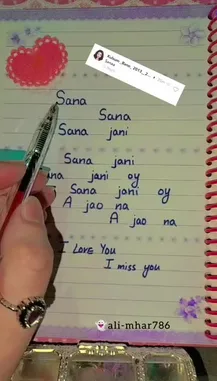 Sana
Sana
Sana jani
Sana jani
na jani oy
Sana joni oy
A jao na
A jao na
I Love You
I miss you
ali-mhar786